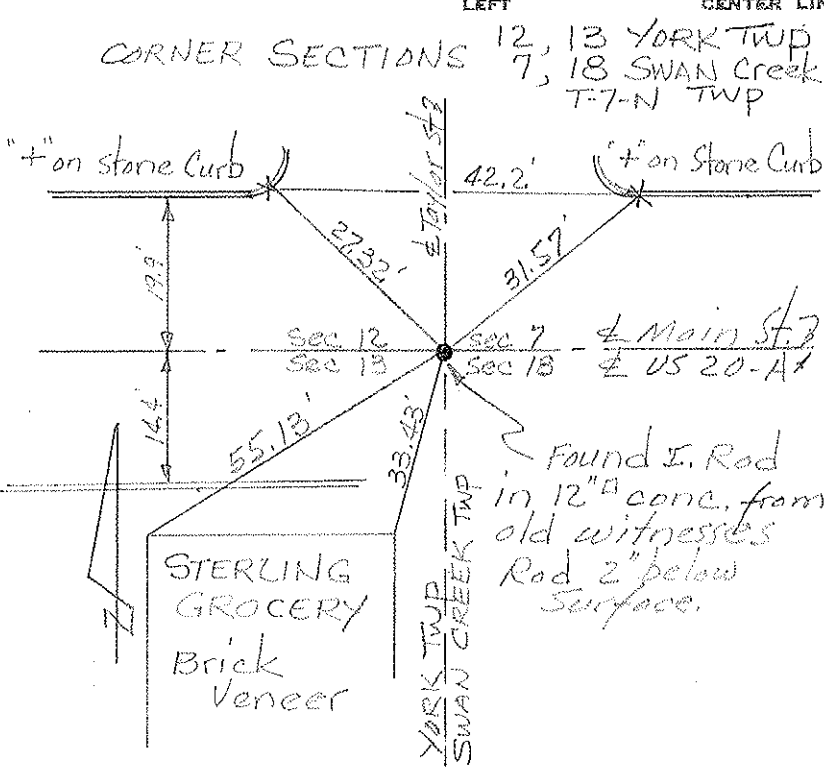 LEFT CENTER LIN
CORNER SECTIONS 12, 13 YORK TWP
7, 18 SWAN Creek
T-7-N TWP
"+" on stone Curb
"+" on Stone Curb
42.2'
℄ Taylor St.
27.32'
31.57'
19.9'
Sec 12
Sec 13
Sec 7
Sec 18
℄ Main St.
℄ US 20-A
14.4'
55.13'
33.43'
Found I. Rod
in 12"□ conc. from
old witnesses
Rod 2" below
Surface.
STERLING
GROCERY
Brick
Veneer
YORK TWP
SWAN CREEK TWP